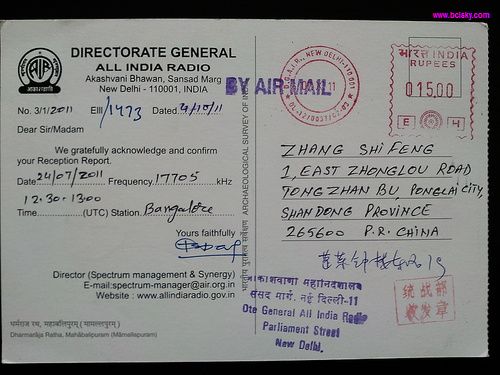 www.bclsky.com
DIRECTORATE GENERAL
ALL INDIA RADIO
Akashvani Bhawan, Sansad Marg
New Delhi - 110001, INDIA
AIR
आकाशवाणी
No. 3/1/2011 EIII/1473 Dated. 4/10/11
Dear Sir/Madam
We gratefully acknowledge and confirm
your Reception Report.
Date 24/07/2011 Frequency. 17705 kHz
12.30-1300
Time (UTC) Station. Bangalore
Yours faithfully
Director (Spectrum management & Synergy)
E-mail:spectrum-manager@air.org.in
Website : www.allindiaradio.gov.in
धर्मराज रथ, महाबलिपुरम् (मामल्लपुरम्)
Dharmarāja Ratha, Mahābalipuram (Māmallapuram)
ARCHAEOLOGICAL SURVEY OF
BY AIR MAIL
NEW DELHI-110 001
भारत INDIA
RUPEES
015.00
ZHANG SHIFENG
1, EAST ZHONGLOU ROAD
TONGZHAN BU, PONGLAI CITY,
SHANDONG PROVINCE
265600 P.R. CHINA
आकाशवाणी महानिदेशालय
संसद मार्ग, नई दिल्ली-11
Dte General All India Radio
Parliament Street
New Delhi.
统战部
收发章